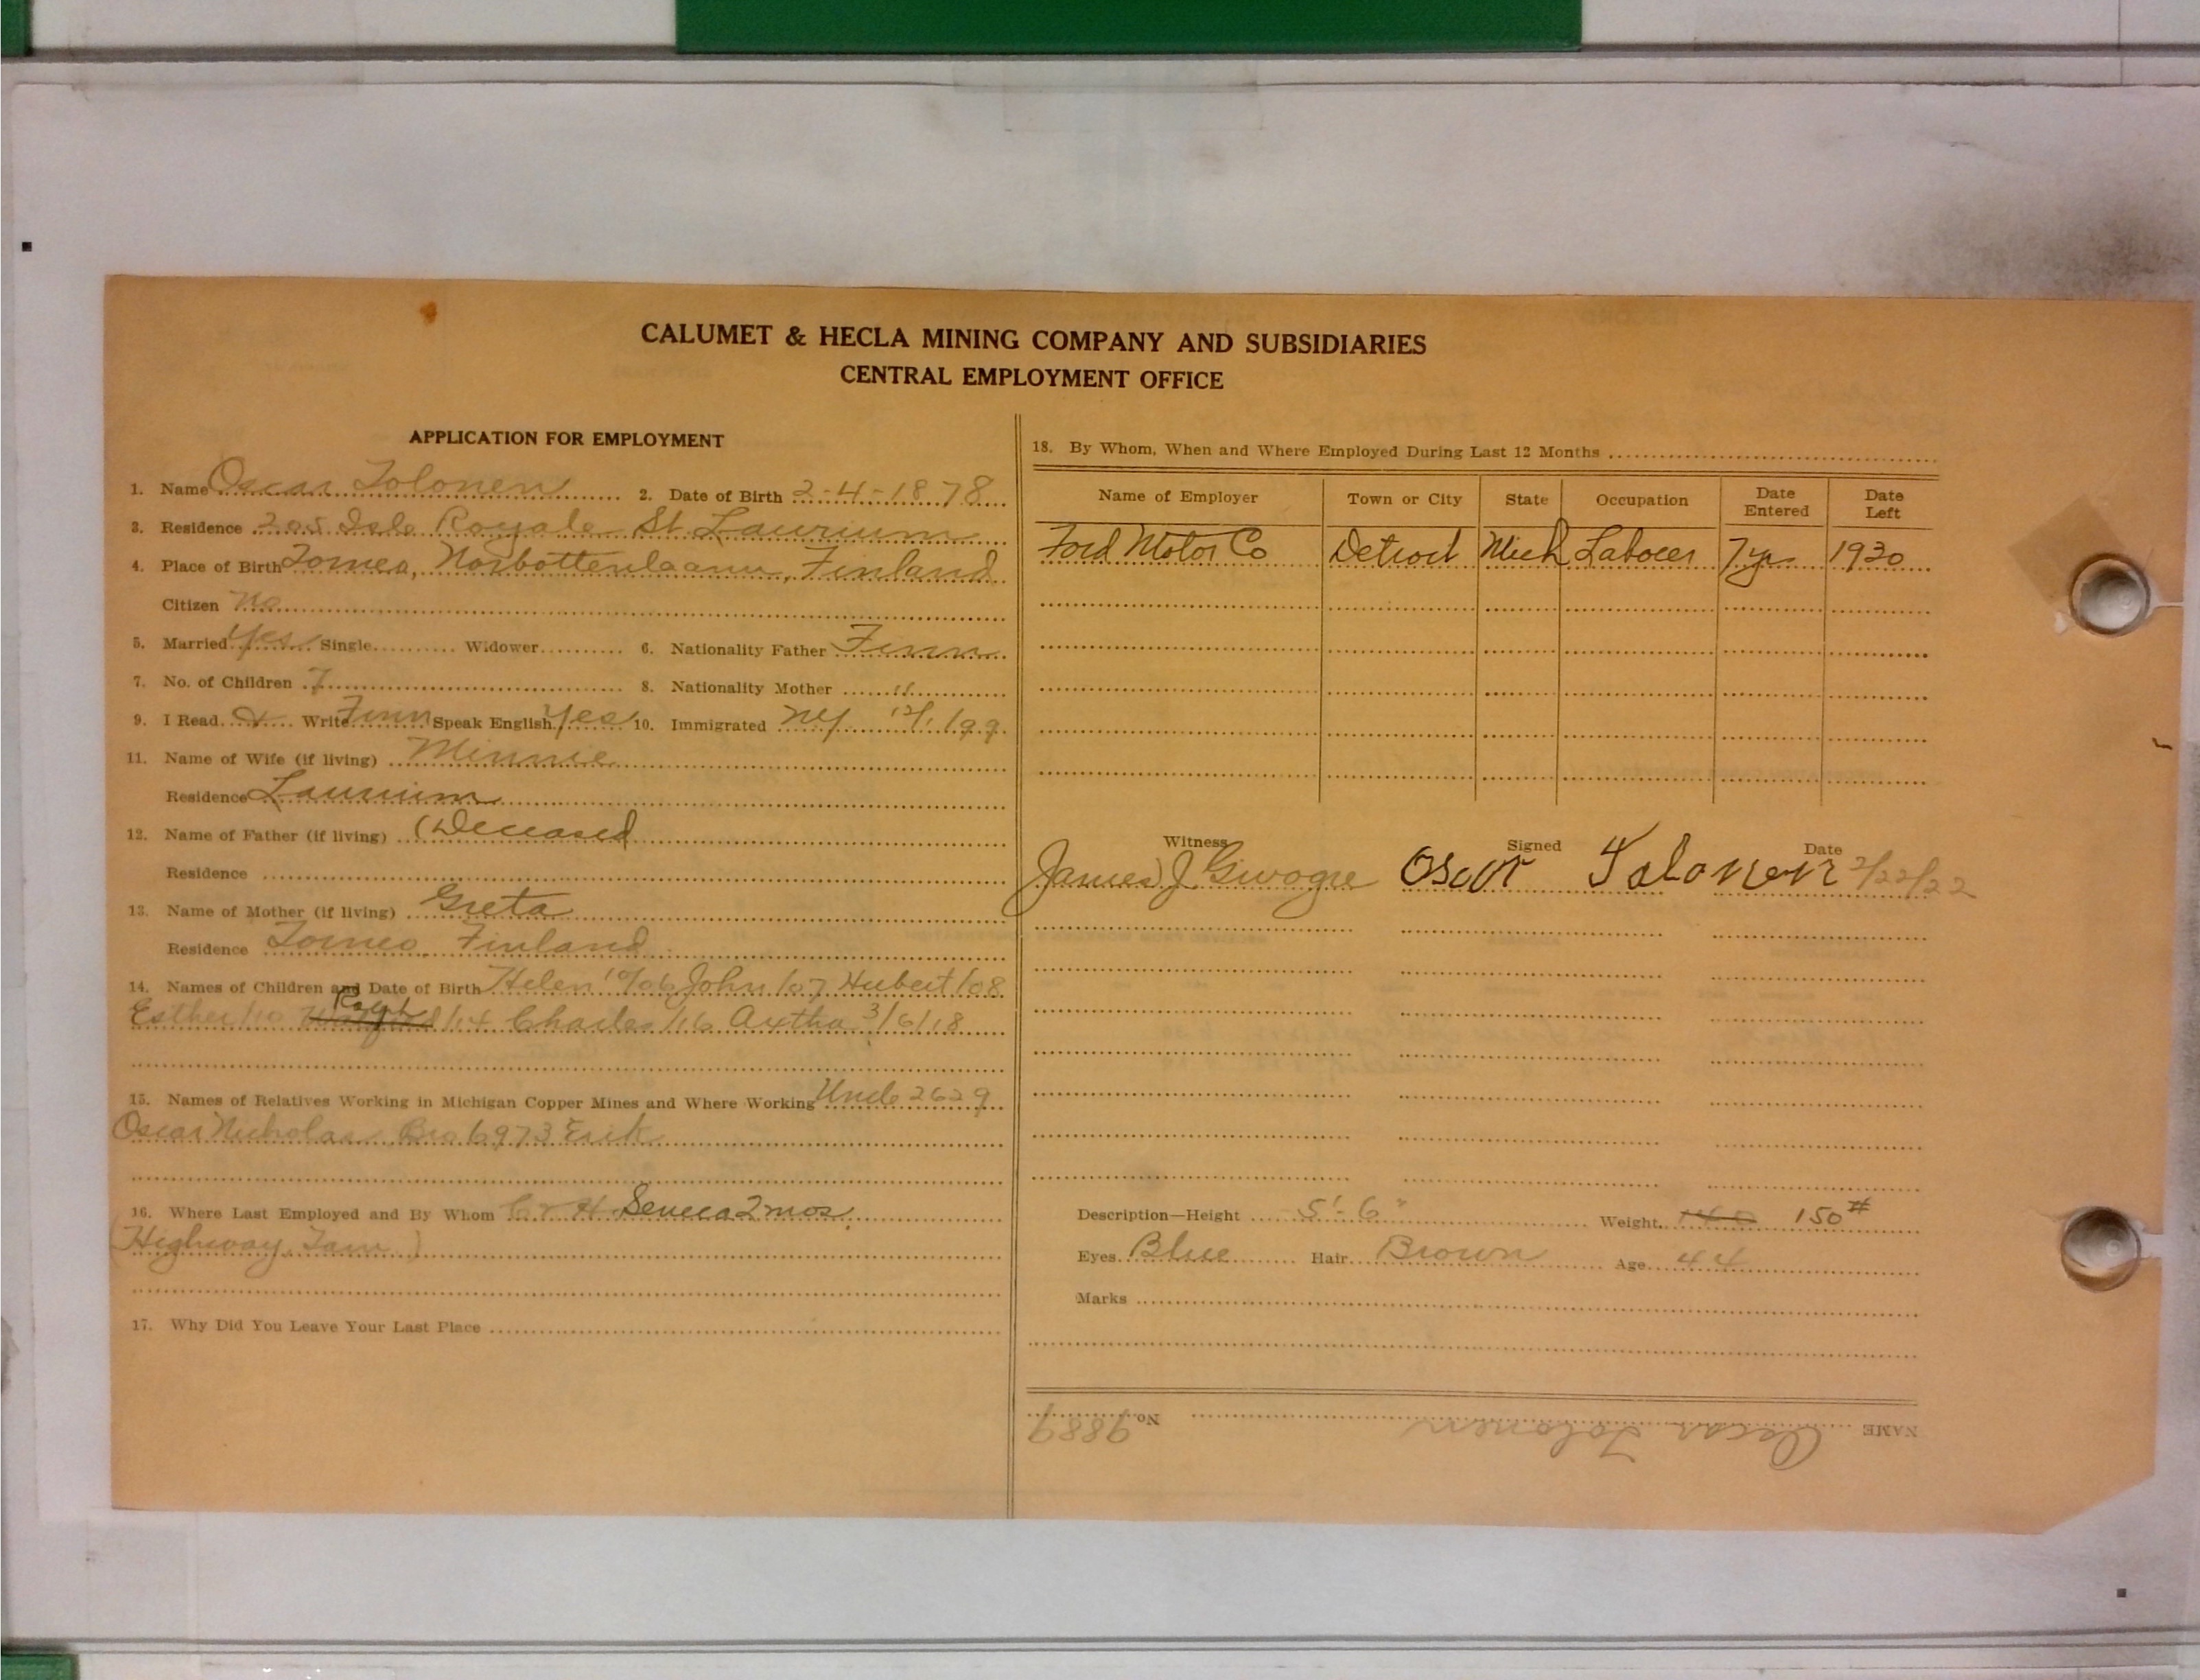 CALUMET & HECLA MINING COMPANY AND SUBSIDIARIES
CENTRAL EMPLOYMENT OFFICE
APPLICATION FOR EMPLOYMENT
1. Name Oscar Tolonen 2. Date of Birth 2-4-1878
3. Residence 205 Isle Royale St. Laurium
4. Place of Birth Torneo, Norbottenlaanu, Finland
Citizen No
5. Married Yes Single Widower 6. Nationality Father Finn
7. No. of Children 7 8. Nationality Mother "
9. I Read & Write Finn Speak English Yes 10. Immigrated NY 12/1/99
11. Name of Wife (if living) Minnie
Residence Laurium
12. Name of Father (if living) (Deceased
Residence
13. Name of Mother (if living) Greta
Residence Torneo, Finland
14. Names of Children and Date of Birth Helen 10/06 John /07 Hubert /08
Esther /10 Ralph /14 Charles /16 Axtha 3/6/18
15. Names of Relatives Working in Michigan Copper Mines and Where Working Uncle 2629
Oscar Nicholas Bro 6973 Erik
16. Where Last Employed and By Whom C & H Seneca 2 mos.
(Highway Tam)
17. Why Did You Leave Your Last Place
18. By Whom, When and Where Employed During Last 12 Months
Name of Employer Town or City State Occupation Date Entered Date Left
Ford Motor Co Detroit Mich Laborer 7 yrs 1930
Witness Signed Date
James J. Oscar Tolonen 2/22/22
Description—Height 5'-6" Weight 140 150#
Eyes Blue Hair Brown Age 44
Marks
NAME Oscar Tolonen No. 9889